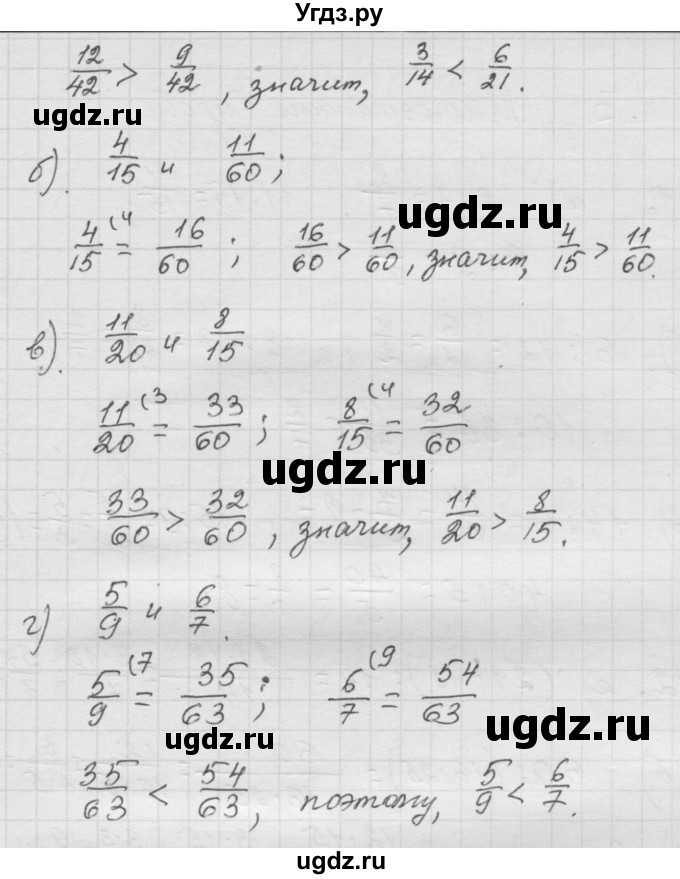 Угдз.ру
12/42 > 9/42, значит, 3/14 < 6/21.
б). 4/15 и 11/60;
ugdz.ru
ugdz.ru
4/15 (4 = 16/60; 16/60 > 11/60, значит, 4/15 > 11/60.
в). 11/20 и 8/15
11/20 (3 = 33/60; 8/15 (4 = 32/60
ugdz.ru
33/60 > 32/60, значит, 11/20 > 8/15.
г) 5/9 и 6/7.
5/9 (7 = 35/63; 6/7 (9 = 54/63
ugdz.ru
ugdz.ru
35/63 < 54/63, поэтому, 5/9 < 6/7.
ugdz.ru